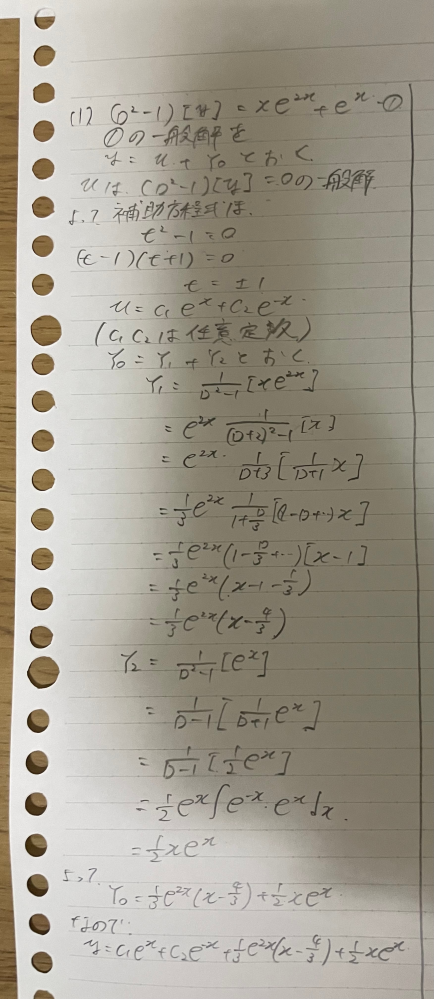 (1) (D²-1)[y] = xe^{2x} + e^x …①
①の一般解を
y = u + Y₀ とおく.
uは (D²-1)[y] = 0 の一般解.
よって 補助方程式は.
t² - 1 = 0
(t-1)(t+1) = 0
t = ±1
u = c₁e^x + c₂e^{-x}.
(c₁ c₂ は任意定数)
Y₀ = Y₁ + Y₂ とおく.
Y₁ = 1/(D²-1) [xe^{2x}]
= e^{2x} 1/((D+2)²-1) [x]
= e^{2x}· 1/(D+3) [1/(D+1) x]
= 1/3 e^{2x} 1/(1+D/3) [(1-D+…)x]
= 1/3 e^{2x} (1 - D/3 + …)[x-1]
= 1/3 e^{2x} (x-1-1/3)
= 1/3 e^{2x} (x-4/3)
Y₂ = 1/(D²-1) [e^x]
= 1/(D-1) [1/(D+1) e^x]
= 1/(D-1) [1/2 e^x]
= 1/2 e^x ∫e^{-x}·e^x dx.
= 1/2 xe^x
よって.
Y₀ = 1/3 e^{2x}(x-4/3) + 1/2 xe^x.
なので.
y = c₁e^x + c₂e^{-x} + 1/3 e^{2x}(x-4/3) + 1/2 xe^x.